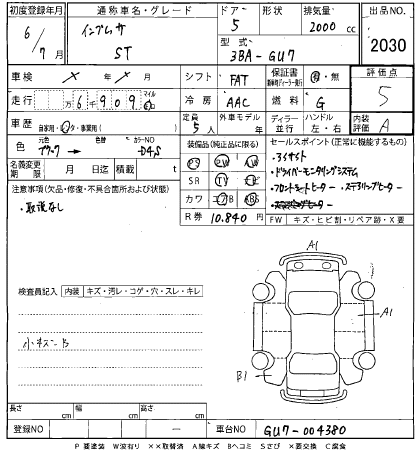 初度登録年月 通称車名・グレード ドア 形状 排気量 出品NO.
6/7月 インプレッサ ST 5 2000cc 2030
型式 3BA-GU7
車検 × 年 × 月 シフト FAT 保証書 有・無 評価点
走行 万 6千 909 マイル 冷房 AAC 燃料 G 5
車歴 自家用・レンタ・事業用( ) 定員 5人 外車モデル 年 ディーラー 並行 ハンドル 左・右 内装評価 A
色 元色 → カラーNO D4S
装備品(純正品に限る) セールスポイント(正常に機能するもの)
PS PW AW
・アイサイト
名義変更期限 月 日迄 積載 t
SR TV ナビ
・ドライバーモニタリングシステム
注意事項(欠品・修復・不具合箇所および状態)
カワ エアB ABS
・フロントシートヒーター ・ステアリングヒーター
・取説なし
R券 10.840円
FW キズ・ヒビ割・リペア跡・X要
検査員記入 内装 キズ・汚レ・コゲ・穴・スレ・キレ
A1
A1
小キズ
B1
長さ cm 幅 cm 高さ cm
登録NO - 車台NO GU7-004380
P 要塗装 W波有り ××取替済 A線キズ Bヘコミ Sさび ×要交換 C腐食